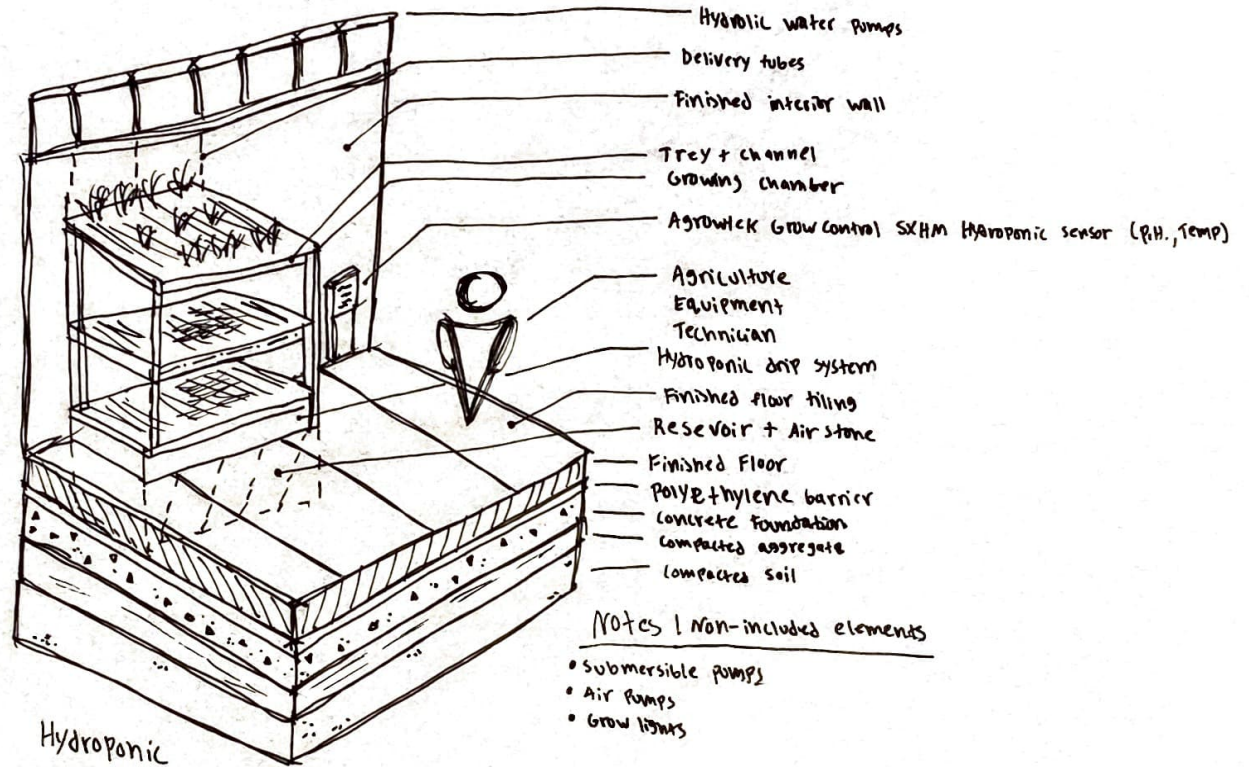 Hydrolic water pumps
Delivery tubes
Finished interior wall
Trey + channel
Growing chamber
Agrowtek Grow Control SXHM Hydroponic sensor (P.H., Temp)
Agriculture
Equipment
Technician
Hydroponic drip system
Finished floor tiling
Resevoir + Air stone
Finished Floor
Polyethylene barrier
Concrete Foundation
Compacted aggregate
Compacted soil
Notes / Non-included elements
• Submersible pumps
• Air Pumps
• Grow lights
Hydroponic